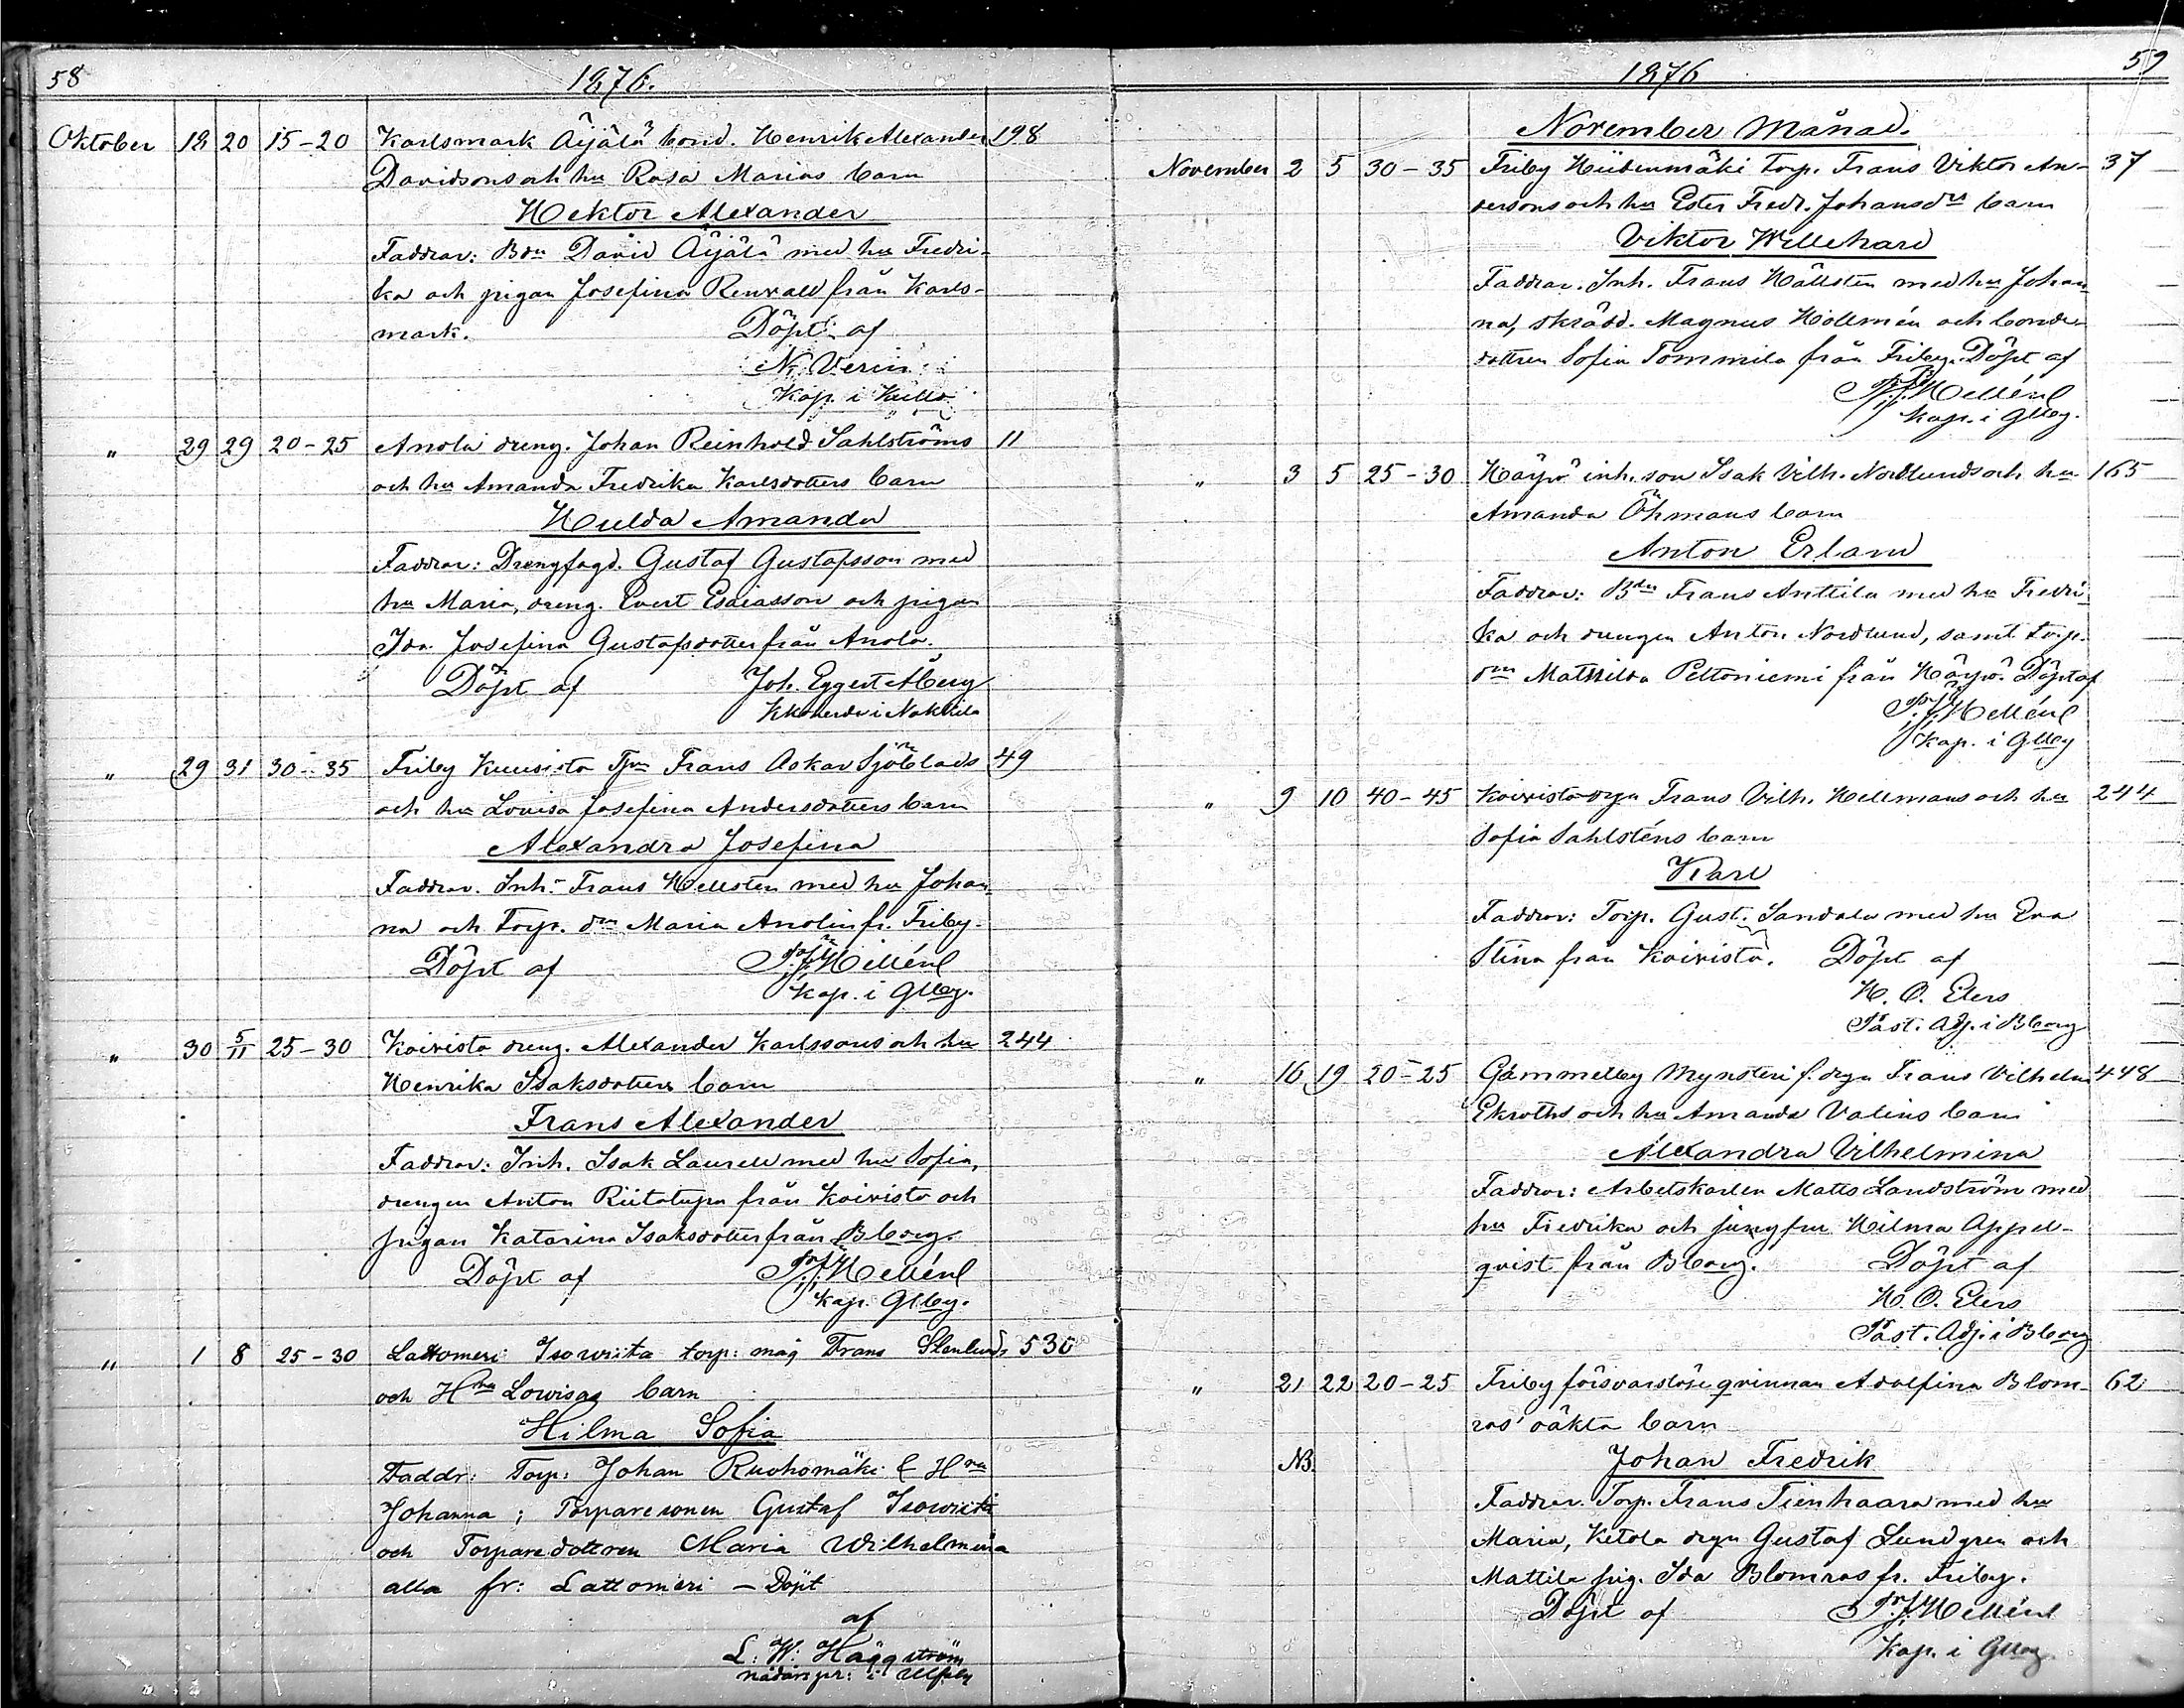 58
1876.
Oktober 18 20 15-20 Karlsmark Äijälä bond. Henrik Alexander 198
Davidsons och hu Rosa Marias barn
Hektor Alexander
Faddrar: Bdn David Äijälä med hu Fredri-
ka och pigan Josefina Renvall från Karls-
mark. Döpt af
N. Verin
Kap. i Kulla
" 29 29 20-25 Anola dreng. Johan Reinhold Sahlströms 11
och hu Amanda Fredrika Karlsdotters barn
Hulda Amanda
Faddrar: Drengfogd. Gustaf Gustafsson med
hu Maria, dreng. Evert Esaiasson och pigan
Ida Josefina Gustafsdotter från Anola.
Döpt af Joh. Eggert Åberg
i Nakkila
" 29 31 30-35 Friby Kuusisto Frans Oskar Sjöblads 49
och hu Lovisa Josefina Andersdotters barn
Alexandra Josefina
Faddrar. Inh. Frans Hellsten med hu Johan
na och torp. dn Maria Anolin fr. Friby.
Döpt af Hellén
Kap. i Glby.
" 30 5/11 25-30 Koivisto dreng. Alexander Karlssons och hu 244
Henrika Isaksdotters barn
Frans Alexander
Faddrar: Inh. Isak Laurell med hu Sofia,
drengen Anton Riitatupa från Koivisto och
pigan Katarina Isaksdotter från Bborg.
Döpt af Hellén
Kap. Glby.
" 1 8 25-30 Lattomeri Isowiita torp: måg Frans Stenlunds 530
och Hru Lowisas barn
Hilma Sofia
Faddr: Torp: Johan Ruohomäki & Hru
Johanna; Torparesonen Gustaf Isowiita
och Torparedottren Maria Wilhelmina
alla fr: Lattomeri — Döpt
af
L: W: Häggström
nådårspr: i Ulfsby
1876
59
November Månad.
November 2 5 30-35 Friby Hiidenmäki torp. Frans Viktor An- 37
dersons och hu Ester Fredr. Johansdrs barn
Viktor Willehard
Faddrar. Inh. Frans Hällsten med hu Johan
na, skrädd. Magnus Hollmén och bonde-
dottren Sofia Tommila från Friby. Döpt af
Hellén
Kap. i Glby.
" 3 5 25-30 Häyö inh. son Isak Vilh. Nordlunds och hu 165
Amanda Öhmans barn
Anton Erland
Faddrar: Bdn Frans Anttila med hu Fredri-
ka och drengen Anton Nordlund, samt torp.
dn Mathilda Peltoniemi från Häyö. Döpt af
Hellén
Kap. i Glby
" 9 10 40-45 Koivisto drgn Frans Vilh. Hellmans och hu 244
Sofia Sahlsténs barn
Karl
Faddrar: Torp. Gust. Sandala med hu Eva
Stina från Koivisto. Döpt af
H. O. Elers
Past. Adj. i Bborg
" 16 19 20-25 Gammelby Mynsteri f. drgn Frans Vilhelm 448
Ekroths och hu Amanda Valins barn
Alexandra Vilhelmina
Faddrar: Arbetskarlen Matts Landström med
hu Fredrika och jungfru Hilma Appel-
qvist från Bborg. Döpt af
H. O. Elers
Past. Adj. i Bborg
" 21 22 20-25 Friby försvarslösa qvinnan Adolfina Blom- 62
ros' oäkta barn
NB. Johan Fredrik
Faddrar. Torp. Frans Tienhaara med hu
Maria, Ketola drgn Gustaf Lundgren och
Mattila pig. Ida Blomros fr. Friby.
Döpt af Hellén
Kap. i Glby